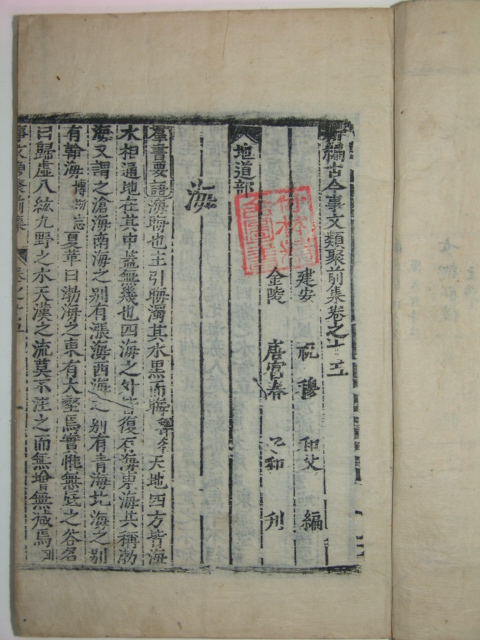 新編古今事文類聚前集卷之十五
建安 祝穆 和父 編
金陵 唐富春 子和 刋
地道部
海
羣書要語海晦也主引晦濁其水黑而晦 釋名 天地四方皆海
水相通地在其中蓋無幾也四海之外皆復有海東海共稱渤
海又謂之滄海南海之别有漲海西海之别有青海北海之别
有瀚海 博物志 夏革曰渤海之東有大壑焉實惟無底之谷名
曰歸虛八紘九野之水天漢之流莫不注之而無增無减焉
事文類聚前集 卷之十五